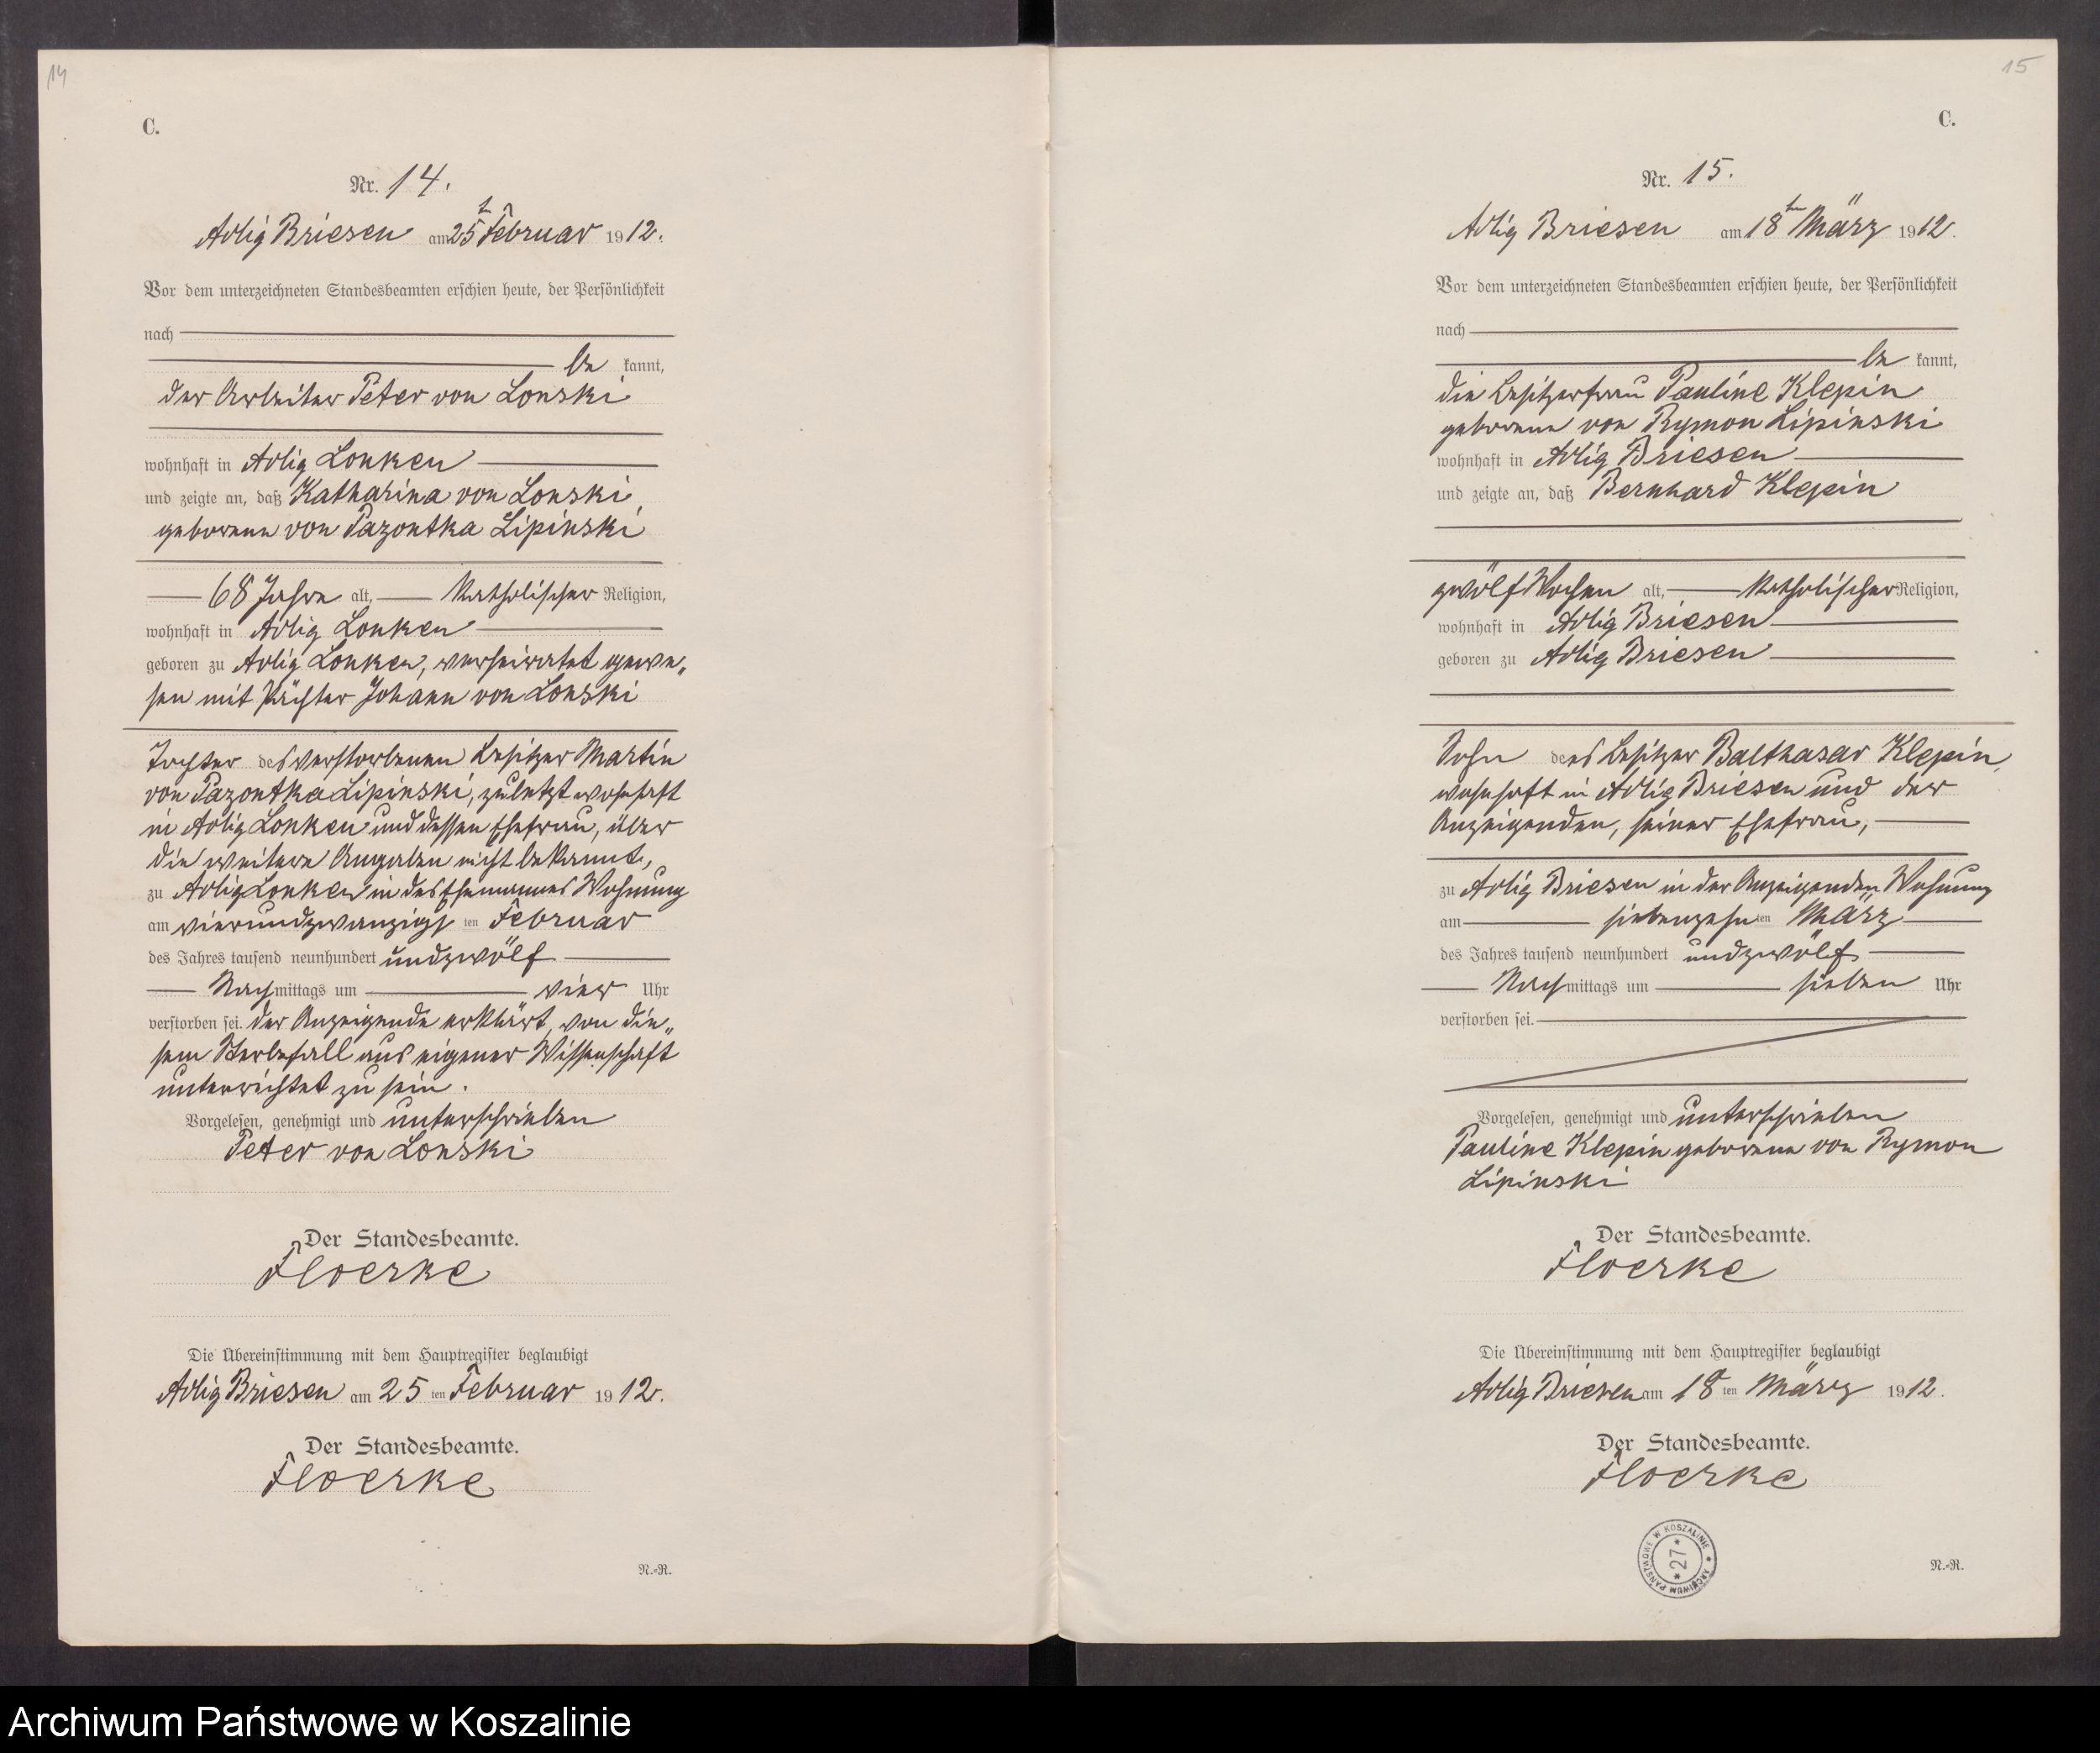 14
C.
Nr. 14.
Adlig Briesen am 25ten Februar 1912.
Vor dem unterzeichneten Standesbeamten erschien heute, der Persönlichkeit
nach
be kannt,
der Arbeiter Peter von Lonski
wohnhaft in Adlig Lonken
und zeigte an, daß Katharina von Lonski,
geborene von Pazontka Lipinski,
68 Jahre alt, katholischer Religion,
wohnhaft in Adlig Lonken
geboren zu Adlig Lonken, verheiratet gewe„
sen mit Pächter Johann von Lonski
Tochter des verstorbenen Besitzer Martin
von Pazontka Lipinski, zuletzt wohnhaft
in Adlig Lonken und dessen Ehefrau, über
die weitere Angaben nicht bekannt,
zu Adlig Lonken in des Ehemannes Wohnung
am vierundzwanzigsten Februar
des Jahres tausend neunhundert undzwölf
Nachmittags um vier Uhr
verstorben sei. Der Anzeigende erklärt, von die„
sem Sterbefall aus eigener Wissenschaft
unterrichtet zu sein.
Vorgelesen, genehmigt und unterschrieben
Peter von Lonski
Der Standesbeamte.
Floerke
Die Übereinstimmung mit dem Hauptregister beglaubigt
Adlig Briesen am 25ten Februar 1912.
Der Standesbeamte.
Floerke
N.=R.
15
C.
Nr. 15.
Adlig Briesen am 18ten März 1912.
Vor dem unterzeichneten Standesbeamten erschien heute, der Persönlichkeit
nach
be kannt,
die Besitzerfrau Pauline Klepin
geborene von Rymon Lipinski
wohnhaft in Adlig Briesen
und zeigte an, daß Bernhard Klepin
zwölf Wochen alt, katholischer Religion,
wohnhaft in Adlig Briesen
geboren zu Adlig Briesen
Sohn des Besitzer Balthasar Klepin,
wohnhaft in Adlig Briesen und der
Anzeigenden, seiner Ehefrau,
zu Adlig Briesen in der Anzeigenden Wohnung
am siebenzehnten März
des Jahres tausend neunhundert undzwölf
Nachmittags um sieben Uhr
verstorben sei.
Vorgelesen, genehmigt und unterschrieben
Pauline Klepin geborene von Rymon
Lipinski
Der Standesbeamte.
Floerke
Die Übereinstimmung mit dem Hauptregister beglaubigt
Adlig Briesen am 18ten März 1912.
Der Standesbeamte.
Floerke
* ARCHIWUM PAŃSTWOWE W KOSZALINIE
* 27 *
N.=R.
Archiwum Państwowe w Koszalinie